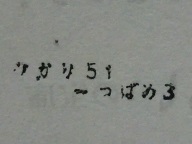 ゆかり51
〜つばめ3